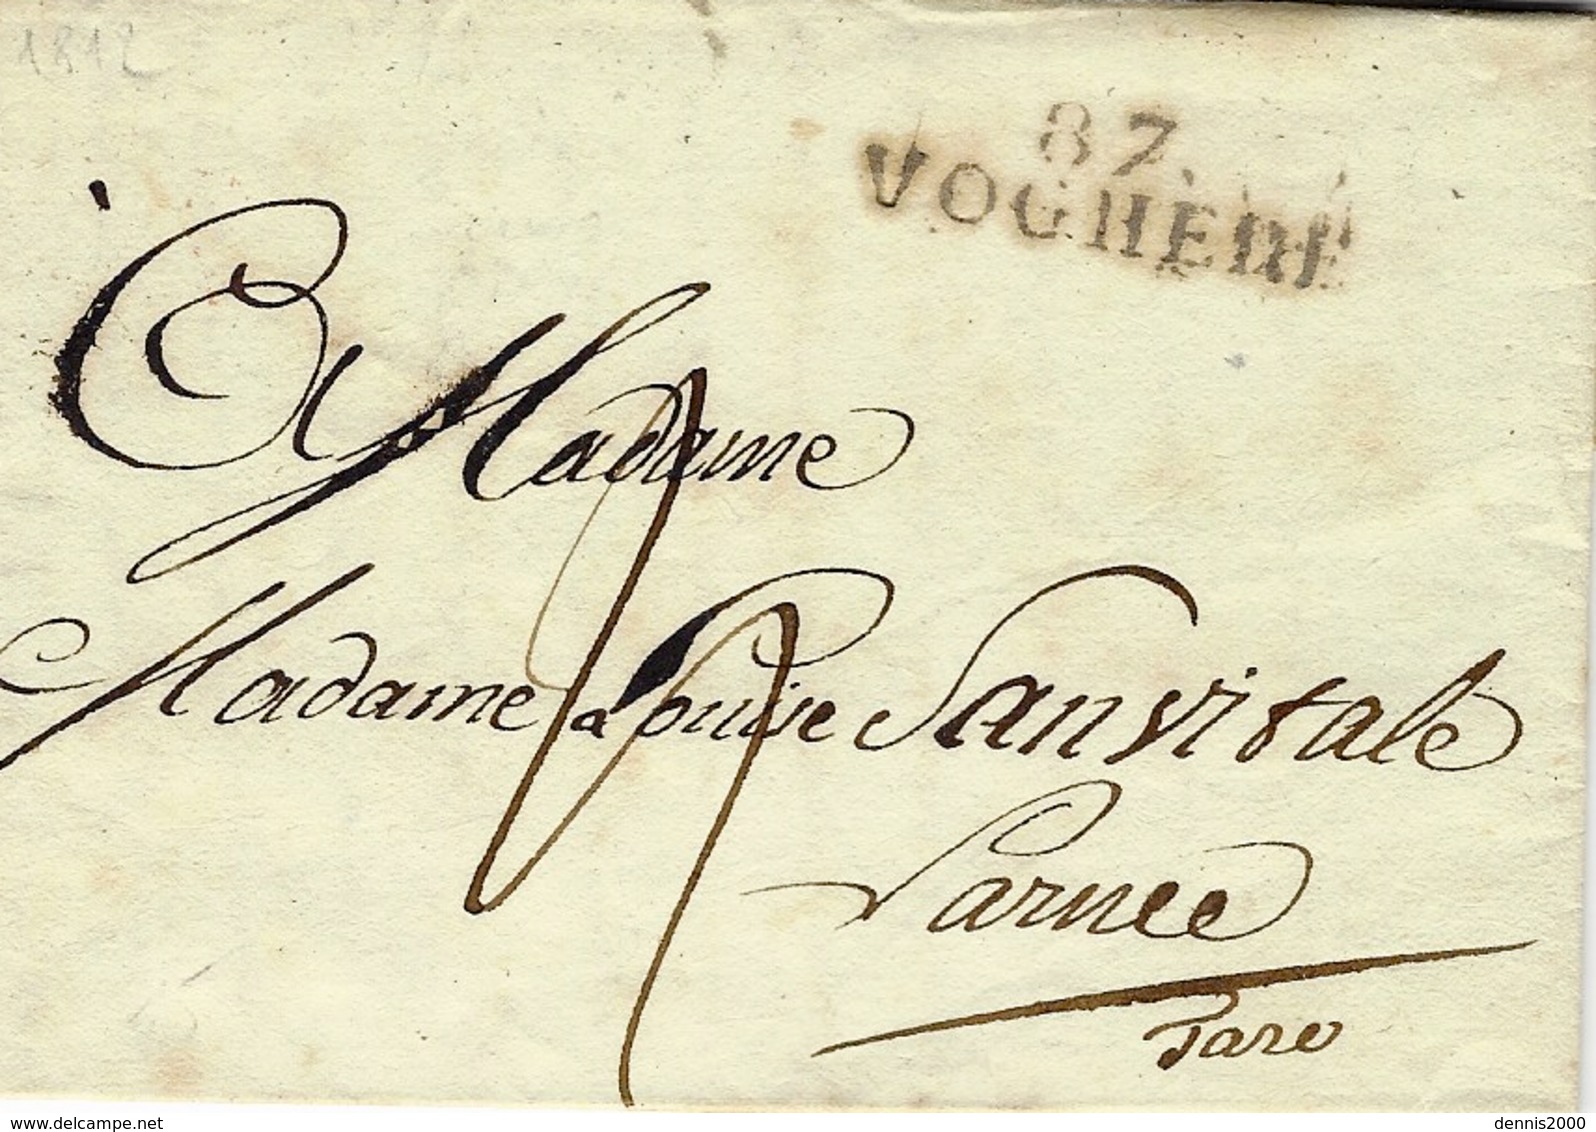 1812
87.
VOGHERE
A Madame
Madame Louise Sanvitale
Parme
Taro
www.delcampe.net
dennis2000